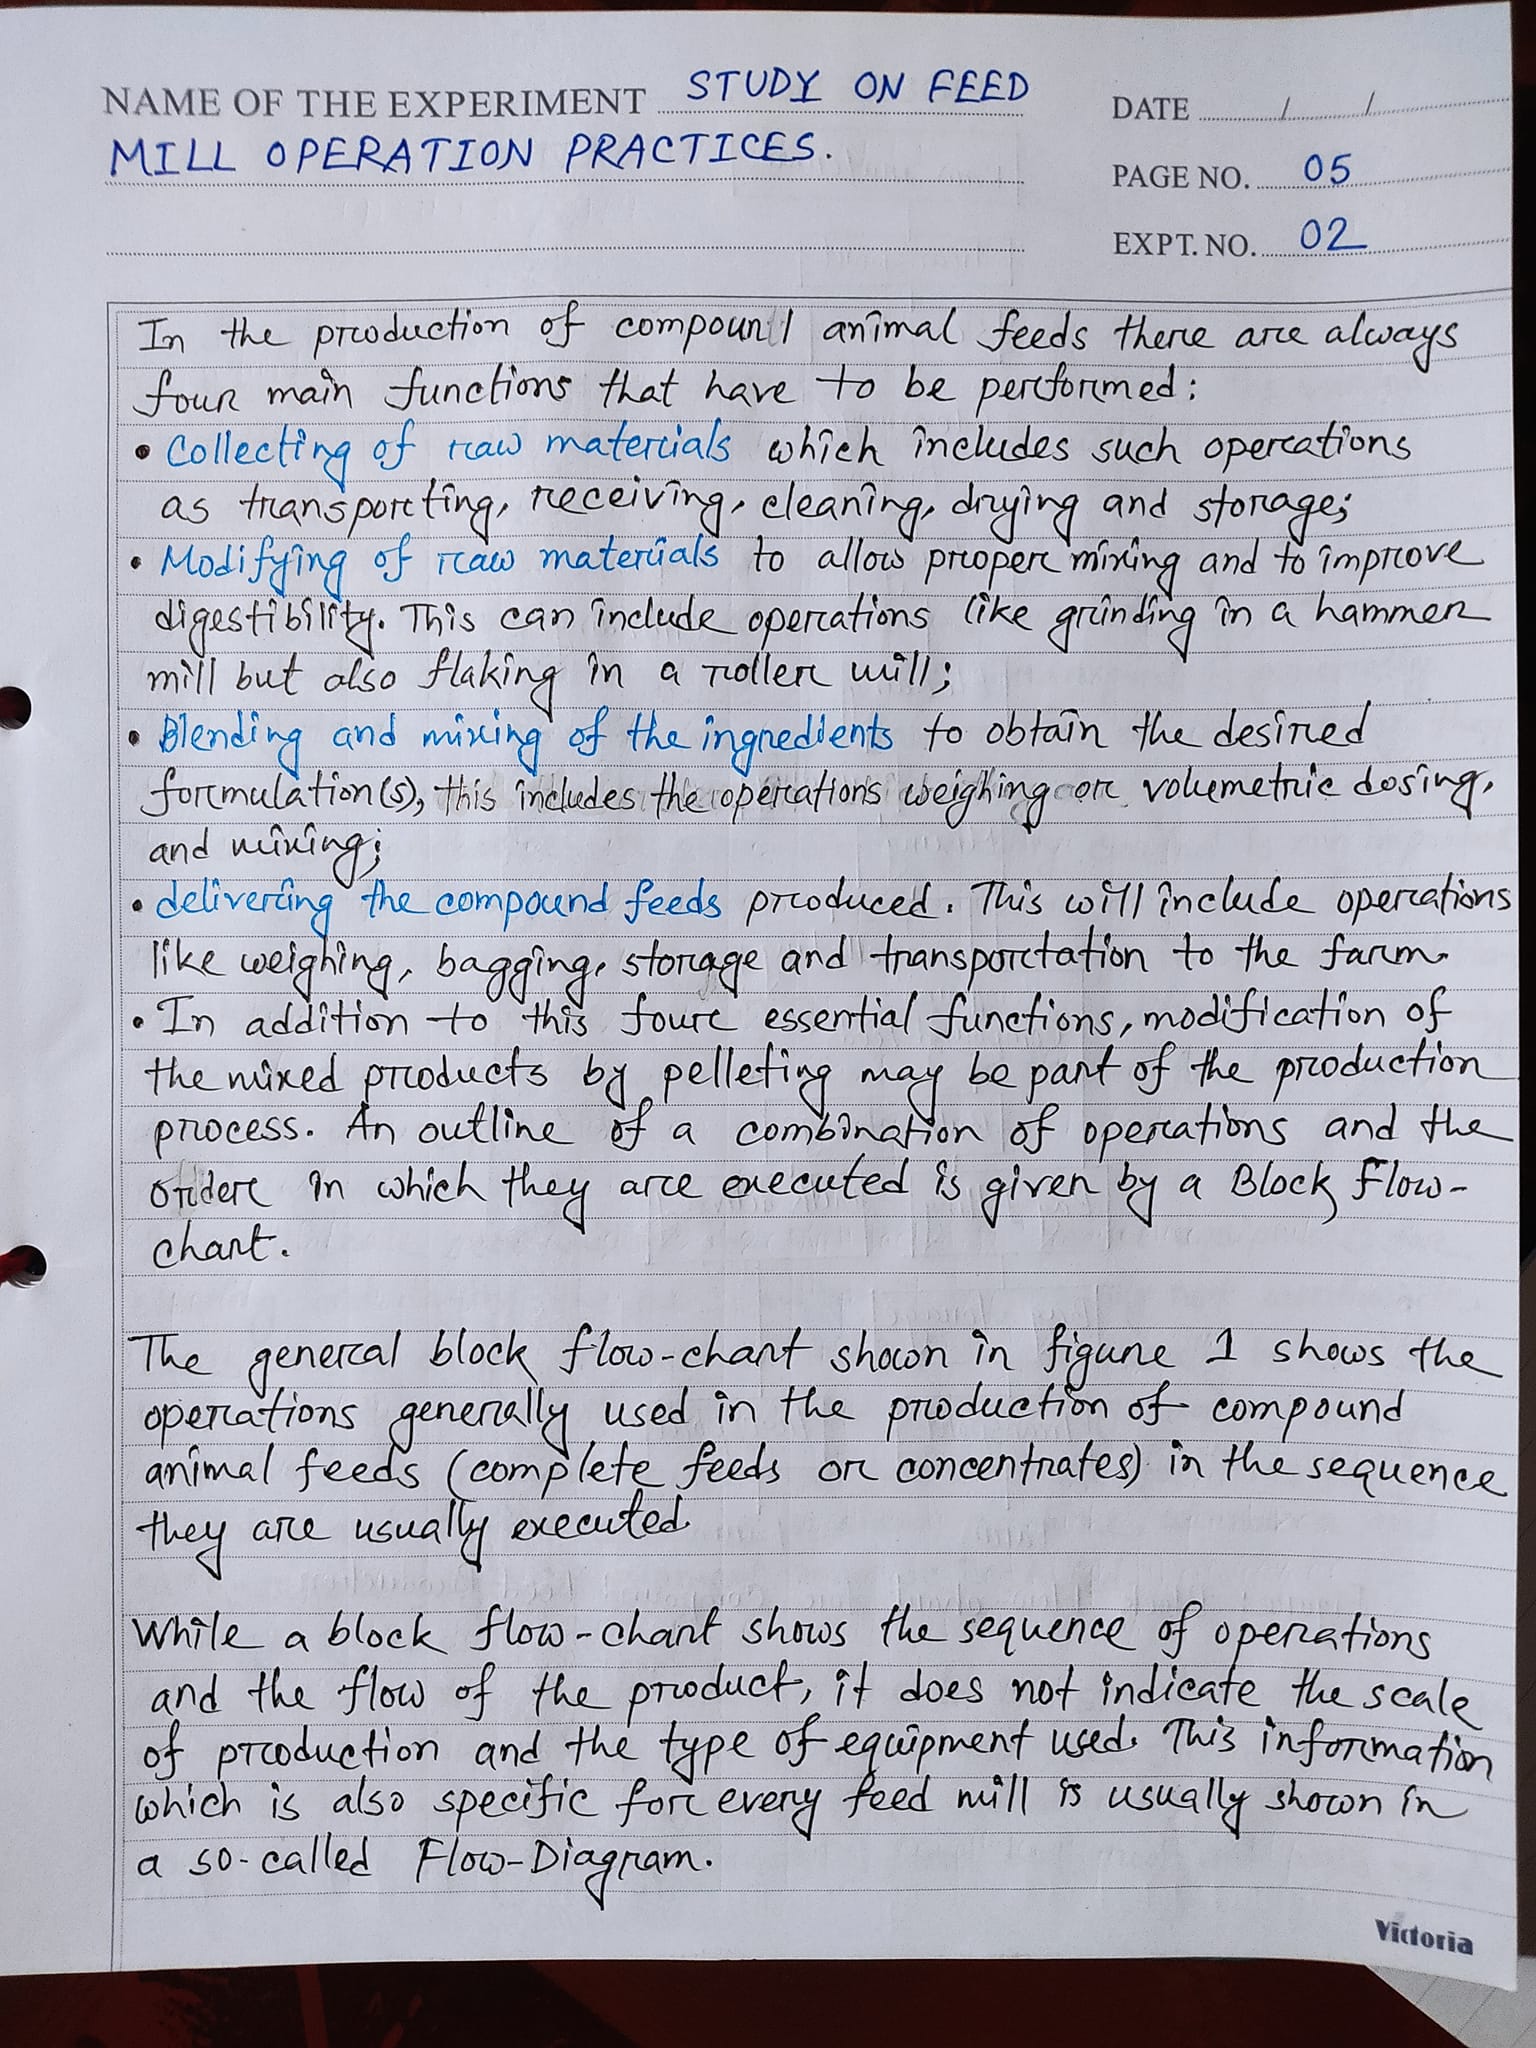 NAME OF THE EXPERIMENT STUDY ON FEED
MILL OPERATION PRACTICES.
DATE / /
PAGE NO. 05
EXPT. NO. 02
In the production of compound animal feeds there are always
four main functions that have to be performed:
• Collecting of raw materials which includes such operations
as transporting, receiving, cleaning, drying and storage;
• Modifying of raw materials to allow proper mixing and to improve
digestibility. This can include operations like grinding in a hammer
mill but also flaking in a roller mill;
• Blending and mixing of the ingredients to obtain the desired
formulation(s), this includes the operations weighing or volumetric dosing,
and mixing;
• delivering the compound feeds produced. This will include operations
like weighing, bagging, storage and transportation to the farm.
• In addition to this four essential functions, modification of
the mixed products by pelleting may be part of the production
process. An outline of a combination of operations and the
order in which they are executed is given by a Block Flow-
chart.
The general block flow-chart shown in figure 1 shows the
operations generally used in the production of compound
animal feeds (complete feeds or concentrates) in the sequence
they are usually executed.
While a block flow-chart shows the sequence of operations
and the flow of the product, it does not indicate the scale
of production and the type of equipment used. This information
which is also specific for every feed mill is usually shown in
a so-called Flow-Diagram.
Victoria